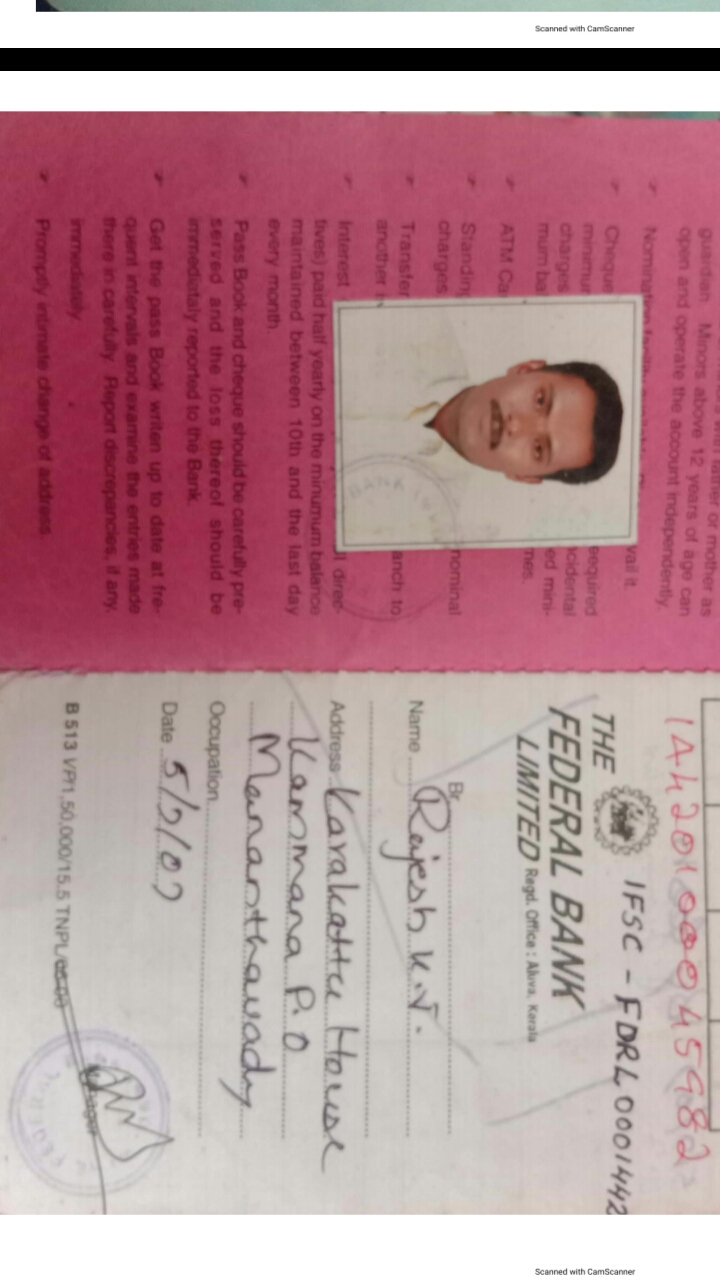 Scanned with CamScanner
guardian. Minors above 12 years of age can
open and operate the account independently.
Nomination
vail it.
Cheque
minimum
eequired
charges
cidental
mum ba
ed mini-
ATM Ca
mes.
Standing
nominal
charges.
Transfer
anch to
another
Interest
direc-
tives) paid half yearly on the minumum balance
maintained between 10th and the last day
every month.
Pass Book and cheque should be carefully pre-
served and the loss thereof should be
immediataly reported to the Bank.
Get the pass Book writen up to date at fre-
quent intervals and examine the entries made
there in carefully. Report discrepancies, if any,
immediately.
Promptly intimate change of address.
BANK
14420100045982
IFSC - FDRL0001442
THE
FEDERAL BANK
LIMITED Regd. Office : Aluva, Kerala
Br.
Name Rajesh K.V.
Address Karakattu House
Kammana P.O
Mananthavady
Occupation
Date 5/2/07
B 513 VP/1,50,000/15.5 TNPL/
Scanned with CamScanner